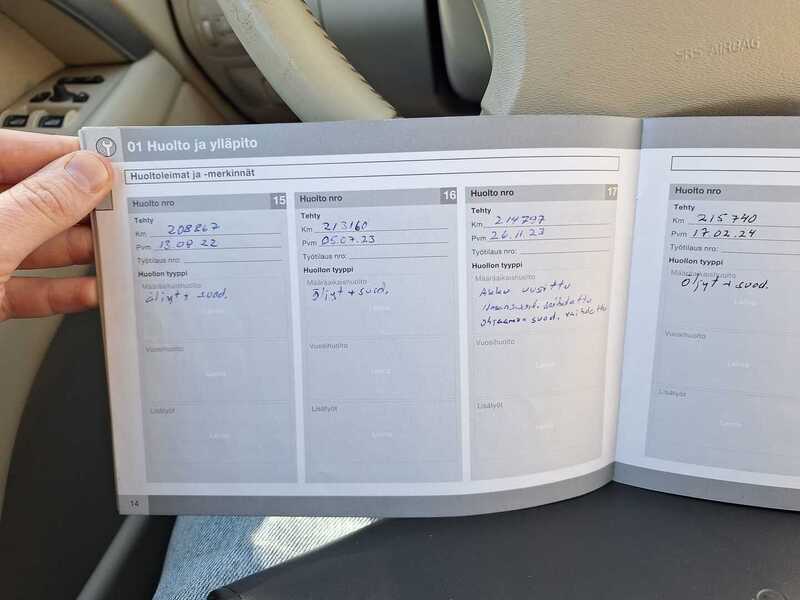 SRS AIRBAG
01 Huolto ja ylläpito
Huoltoleimat ja -merkinnät
Huolto nro 15
Tehty
Km 208867
Pvm 13.09.22
Työtilaus nro:
Huollon tyyppi
Määräaikaishuolto
öljyt + suod.
Leima
Vuosihuolto
Leima
Lisätyöt
Leima
Huolto nro 16
Tehty
Km 213160
Pvm 05.07.23
Työtilaus nro:
Huollon tyyppi
Määräaikaishuolto
Öljyt + suod.
Leima
Vuosihuolto
Leima
Lisätyöt
Leima
Huolto nro 17
Tehty
Km 214797
Pvm 26.11.23
Työtilaus nro:
Huollon tyyppi
Määräaikaishuolto
Akku uusittu
ilmansuod. vaihdettu
ohjaamon suod. vaihdettu
Vuosihuolto
Leima
Lisätyöt
Leima
Huolto nro
Tehty
Km 215740
Pvm 17.02.24
Työtilaus nro:
Huollon tyyppi
Määräaikaishuolto
Öljyt + suod.
Vuosihuolto
Leima
Lisätyöt
Leima
14